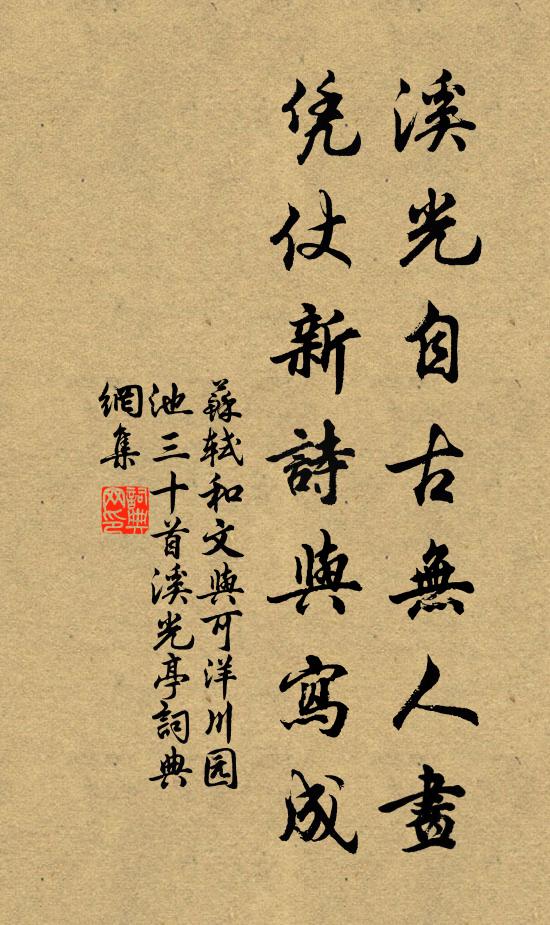 溪光自古無人畫
凭仗新詩與寫成
蘇軾和文與可洋川园
池三十首溪光亭詞典
網集
詞典
网印